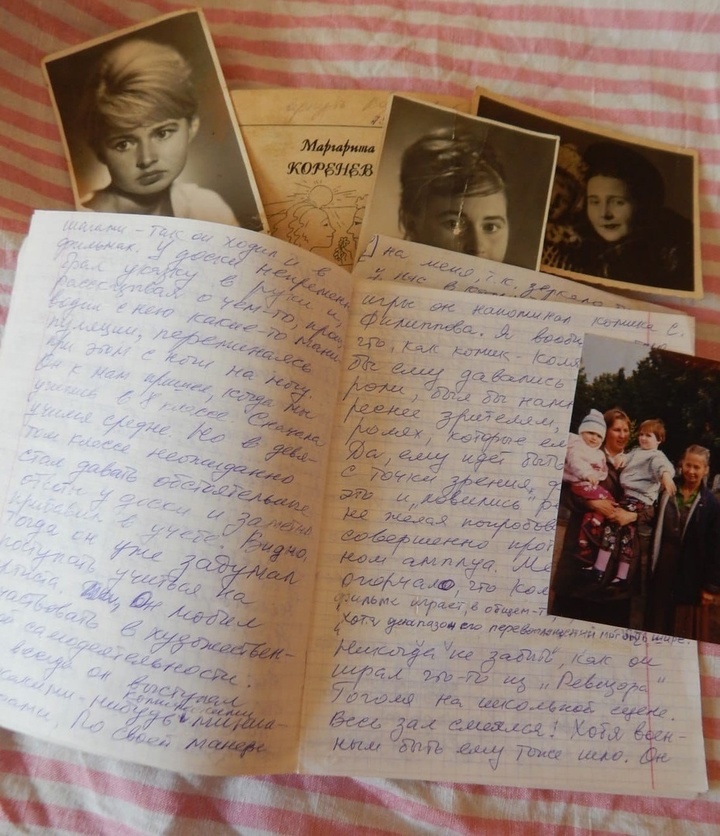 Маргарита
КОРЕНЕВ
шагами - так он ходил и в
фильмах. У доски непременно
брал указку в руки и,
рассказывая о чем-то, произ
водил с нею какие-то мани
пуляции, переминаясь
при этом с ноги на ногу.
Он к нам пришел, когда мы
учились в 8 классе. Сначала
учился средне. Но в девя-
том классе неожиданно
стал давать обстоятельные
ответы у доски и заметно
прибавил в учебе. Видно,
тогда он уже задумал
поступать учиться на
артиста. Он любил
участвовать в художествен-
самодеятельности.
всегда он выступал
комическими
какими-нибудь миниа-
По своей манере
на меня, т.к. зеркало
у нас в
игры он напоминал комика С.
Филиппова. Я вооб
что, как комик - Коля
бы ему давались
роли, был бы
реснее зрителям,
ролях, которые ем
Да, ему идет быть
с точки зрения
это и "ловились"
не желая попробова
совершенно про
ном амплуа. Ме
огорчало, что Кол
фильме играет, в общем-то,
Хотя диапазон его перевоплощений мог быть шире.
Никогда не забыть, как он
играл что-то из "Ревизора"
Гоголя на школьной сцене.
Весь зал смеялся! Хотя воен-
ным быть ему тоже шло. Он